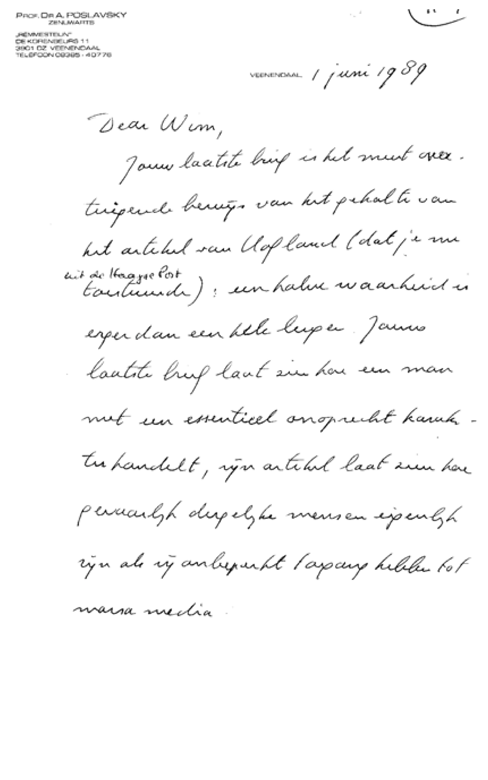 PROF. DR A. POSLAVSKY
ZENUWARTS
"REMMESTEIJN"
DE KORENBEURS 11
3901 DZ VEENENDAAL
TELEFOON 08385 - 40776
VEENENDAAL, 1 juni 1989
Dear Wim,
Jouw laatste brief is het meest over-
tuigende bewijs van het gehalte van
het artikel van Hofland (dat je me
uit de Haagse Post
toestuurde): een halve waarheid is
erger dan een hele leugen. Jouw
laatste brief laat zien hoe een man
met een essentieel onoprecht karak-
ter handelt, zijn artikel laat zien hoe
gevaarlijk dergelijke mensen eigenlijk
zijn als zij onbeperkt toegang hebben tot
massa media.